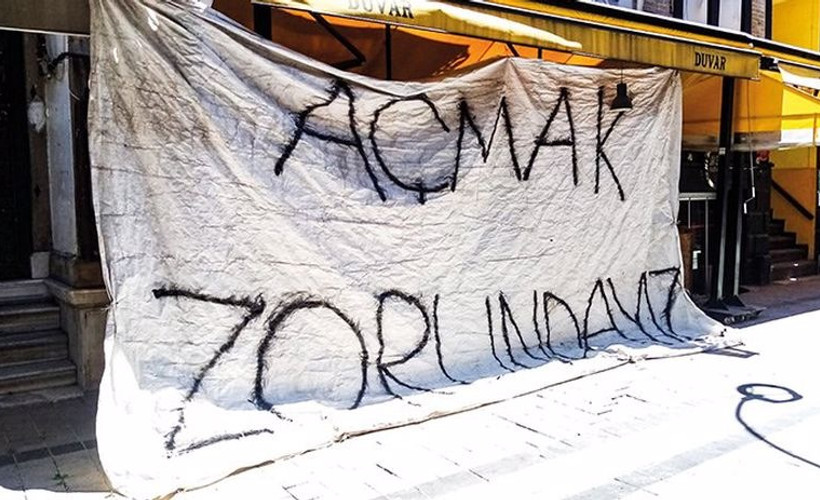 DUVAR
DUVAR
AÇMAK
ZORUNDAYIZ